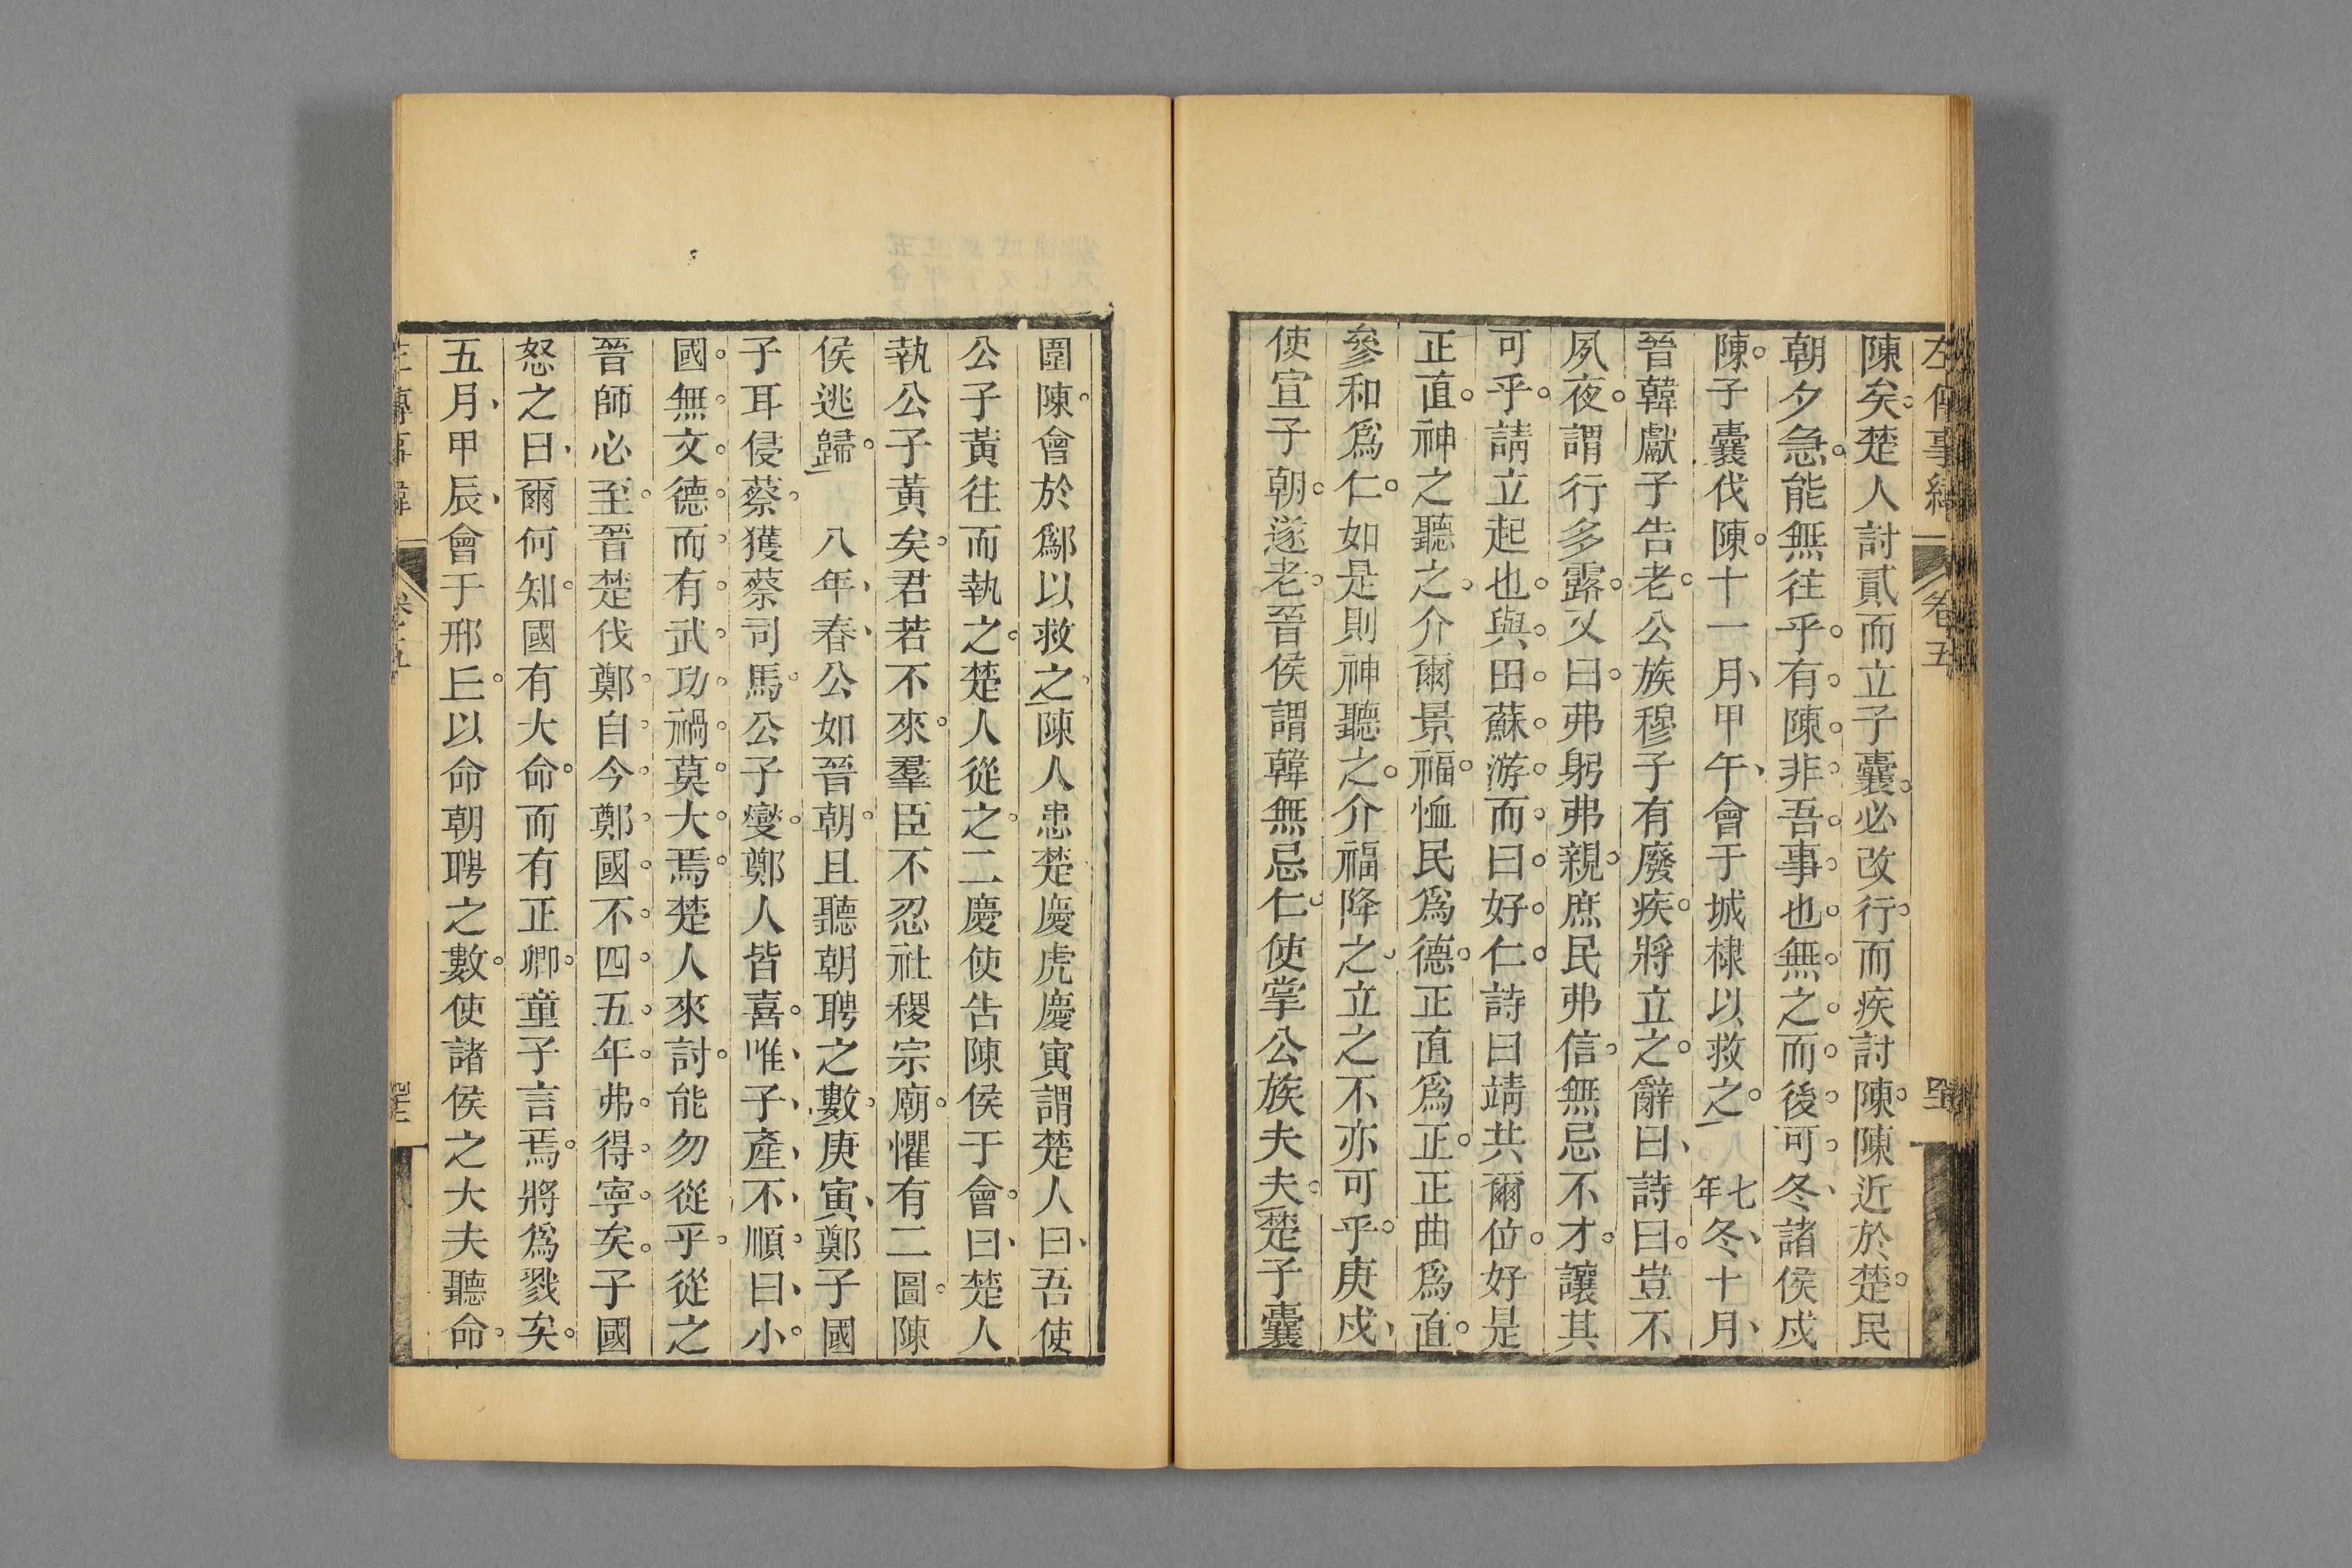 左傳事緯 卷五
陳矣楚人討貳而立子囊必改行而疾討陳陳近於楚民
朝夕急能無往乎有陳非吾事也無之而後可冬諸侯戍
陳子囊伐陳十一月甲午會于城棣以救之 七年冬十月
晉韓獻子告老公族穆子有廢疾將立之辭曰詩曰豈不
夙夜謂行多露又曰弗躬弗親庶民弗信無忌不才讓其
可乎請立起也與田蘇游而曰好仁詩曰靖共爾位好是
正直神之聽之介爾景福恤民為德正直為正正曲為直
參和為仁如是則神聽之介福降之立之不亦可乎庚戌
使宣子朝遂老晉侯謂韓無忌仁使掌公族大夫楚子囊
圍陳會於鄬以救之陳人患楚慶虎慶寅謂楚人曰吾使
公子黃往而執之楚人從之二慶使告陳侯于會曰楚人
執公子黃矣君若不來羣臣不忍社稷宗廟懼有二圖陳
侯逃歸 八年春公如晉朝且聽朝聘之數庚寅鄭子國
子耳侵蔡獲蔡司馬公子燮鄭人皆喜唯子產不順曰小
國無文德而有武功禍莫大焉楚人來討能勿從乎從之
晉師必至晉楚伐鄭自今鄭國不四五年弗得寧矣子國
怒之曰爾何知國有大命而有正卿童子言焉將為戮矣
五月甲辰會于邢丘以命朝聘之數使諸侯之大夫聽命